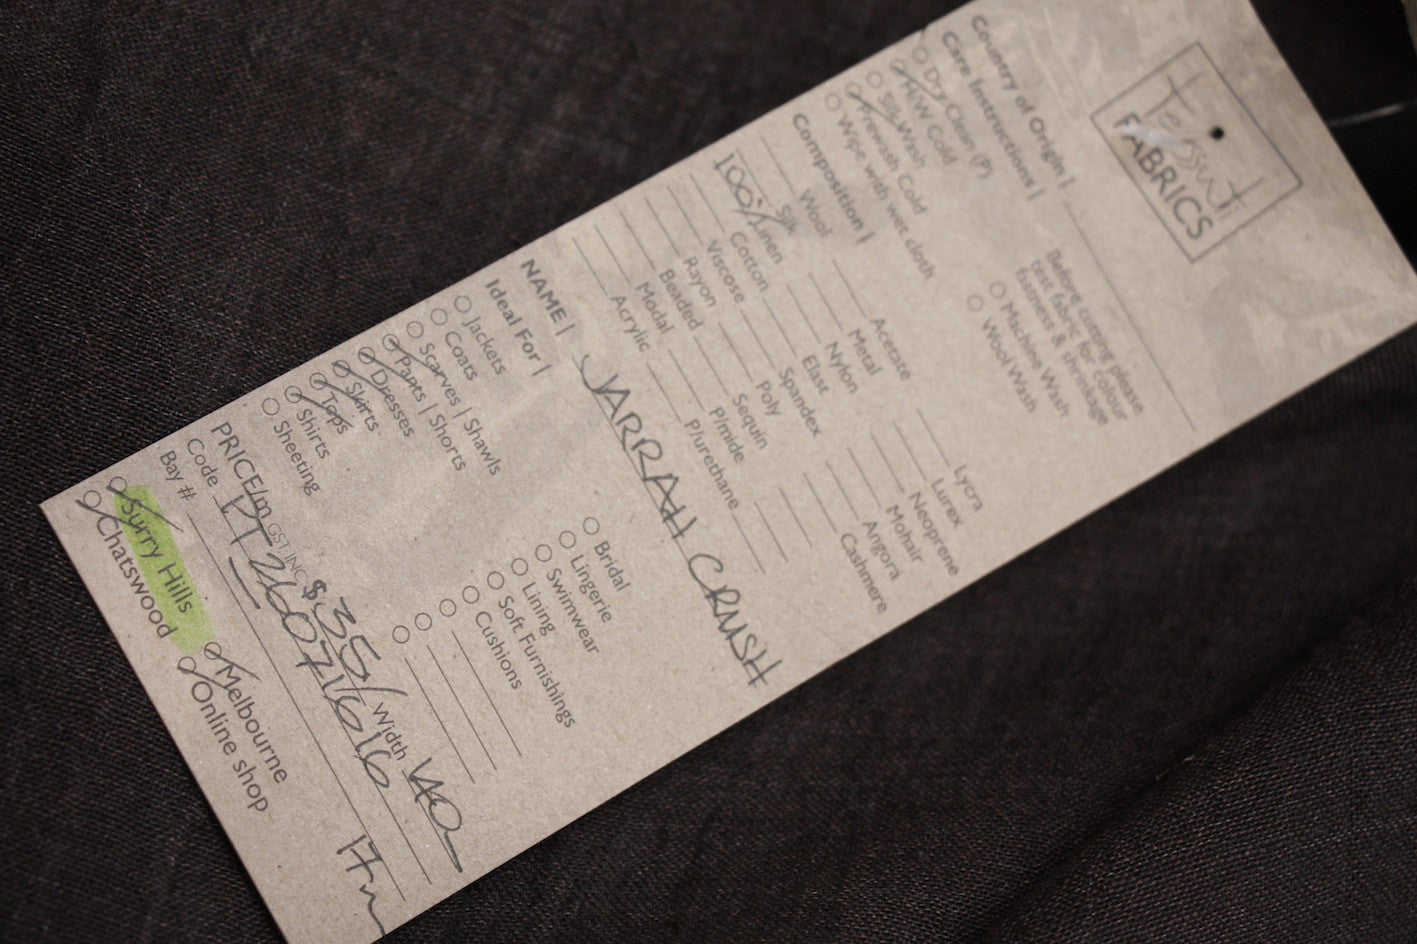 tessuti
FABRICS
Country of Origin |
Care Instructions |
Dry Clean (P)
H/W Cold
Silk Wash
Prewash Cold
Wipe with wet cloth
Before cutting please
test fabric for colour
fastness & shrinkage
Machine Wash
Wool Wash
Composition |
Wool Acetate Lycra
Silk Metal Lurex
100% Linen Nylon Neoprene
Cotton Elast Mohair
Viscose Spandex Angora
Rayon Poly Cashmere
Beaded Sequin
Modal P/mide
Acrylic P/urethane
NAME | JARRAH CRUSH
Ideal For |
Jackets Bridal
Coats Lingerie
Scarves | Shawls Swimwear
Pants | Shorts Lining
Dresses Soft Furnishings
Skirts Cushions
Tops
Shirts
Sheeting
PRICE/m GST INC $35/ Width 140
Code PT26071616
Bay # 17m
Surry Hills Melbourne
Chatswood Online shop